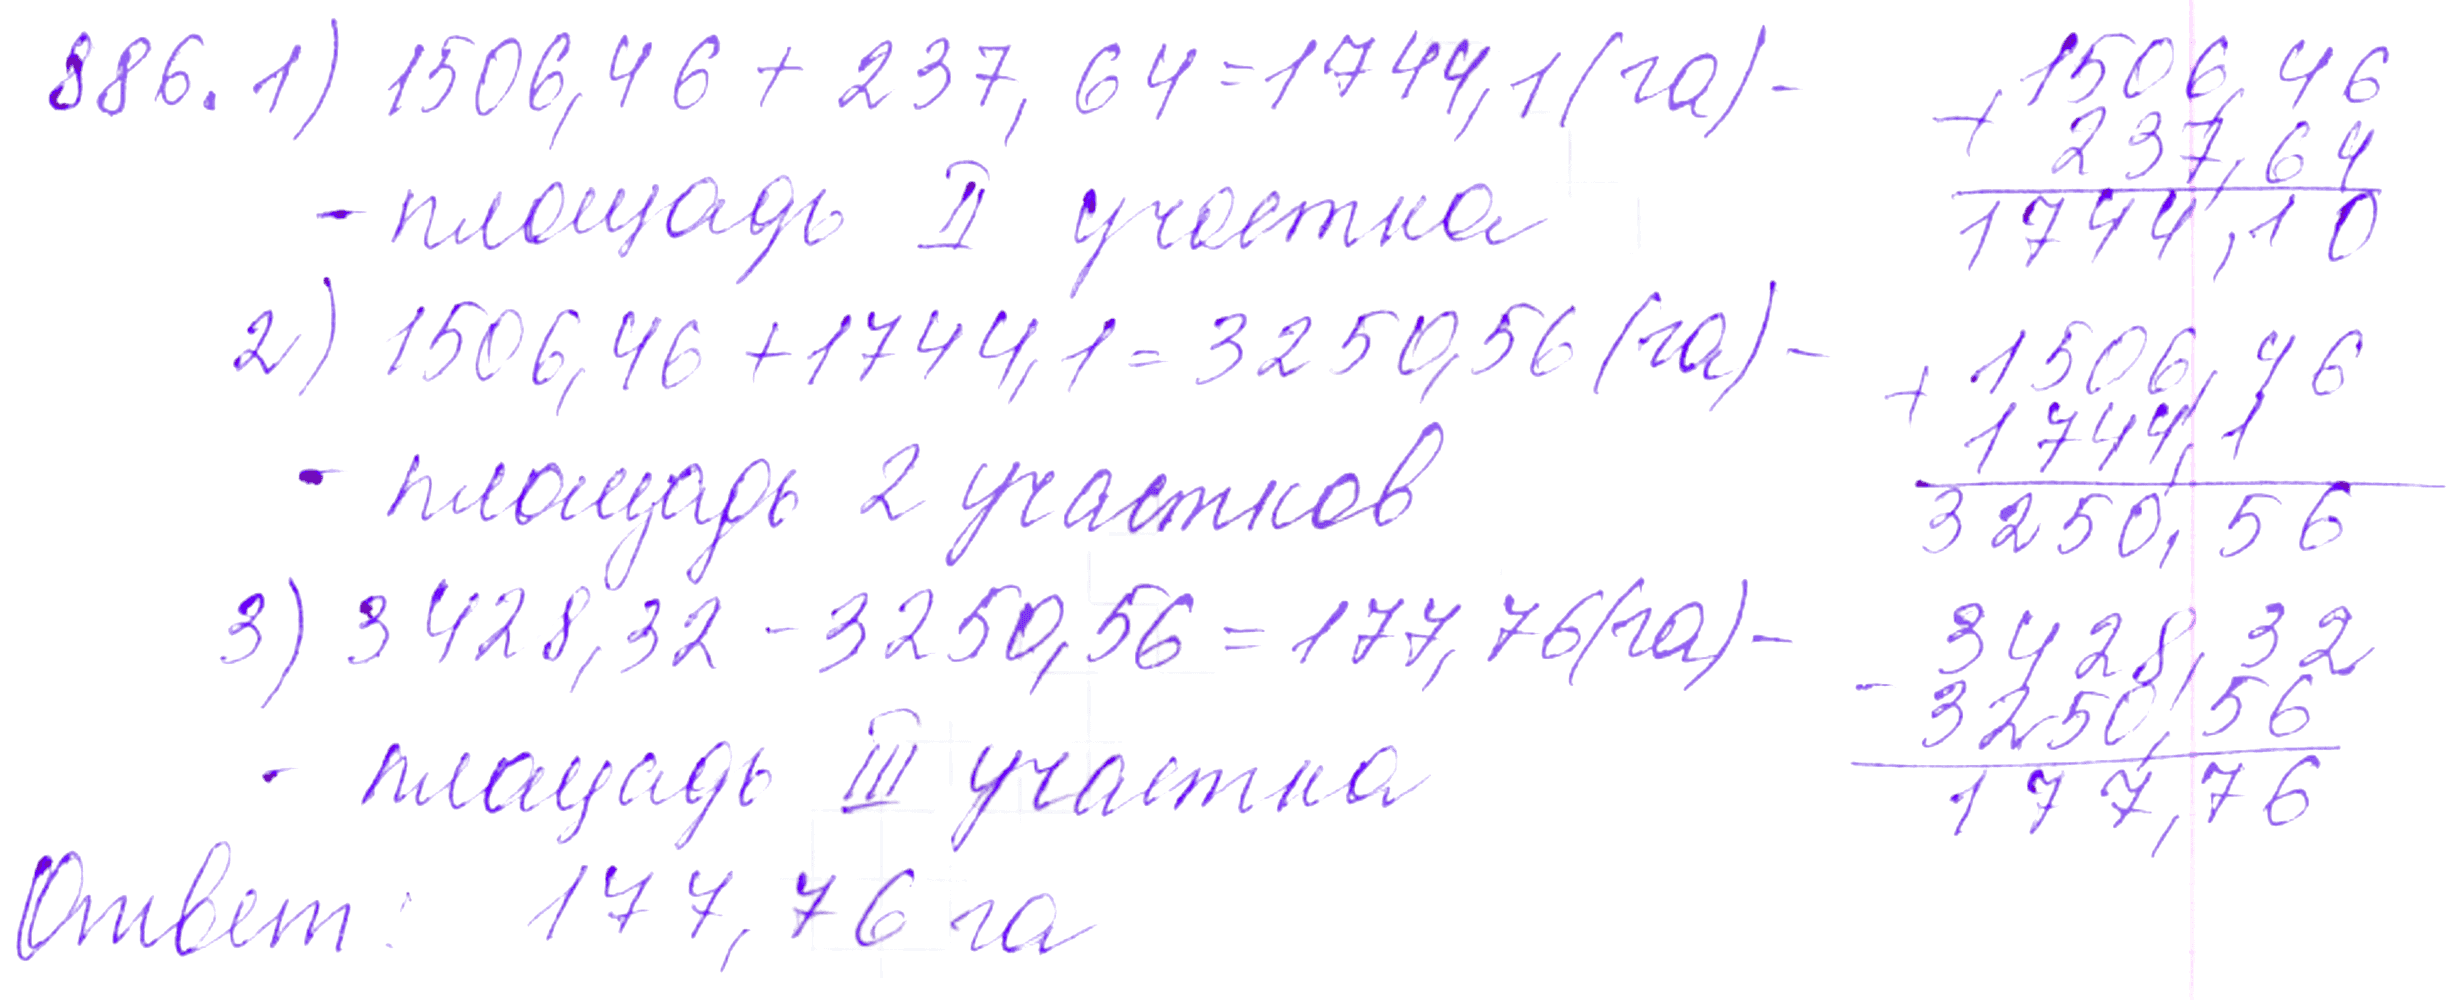 886. 1) 1506,46 + 237,64 = 1744,1 (га) -
- площадь II участка
2) 1506,46 + 1744,1 = 3250,56 (га) -
- площадь 2 участков
3) 3428,32 - 3250,56 = 177,76 (га) -
- площадь III участка
Ответ: 177,76 га
1506,46
+ 237,64
1744,10
1506,46
+ 1744,1
3250,56
3428,32
- 3250,56
177,76